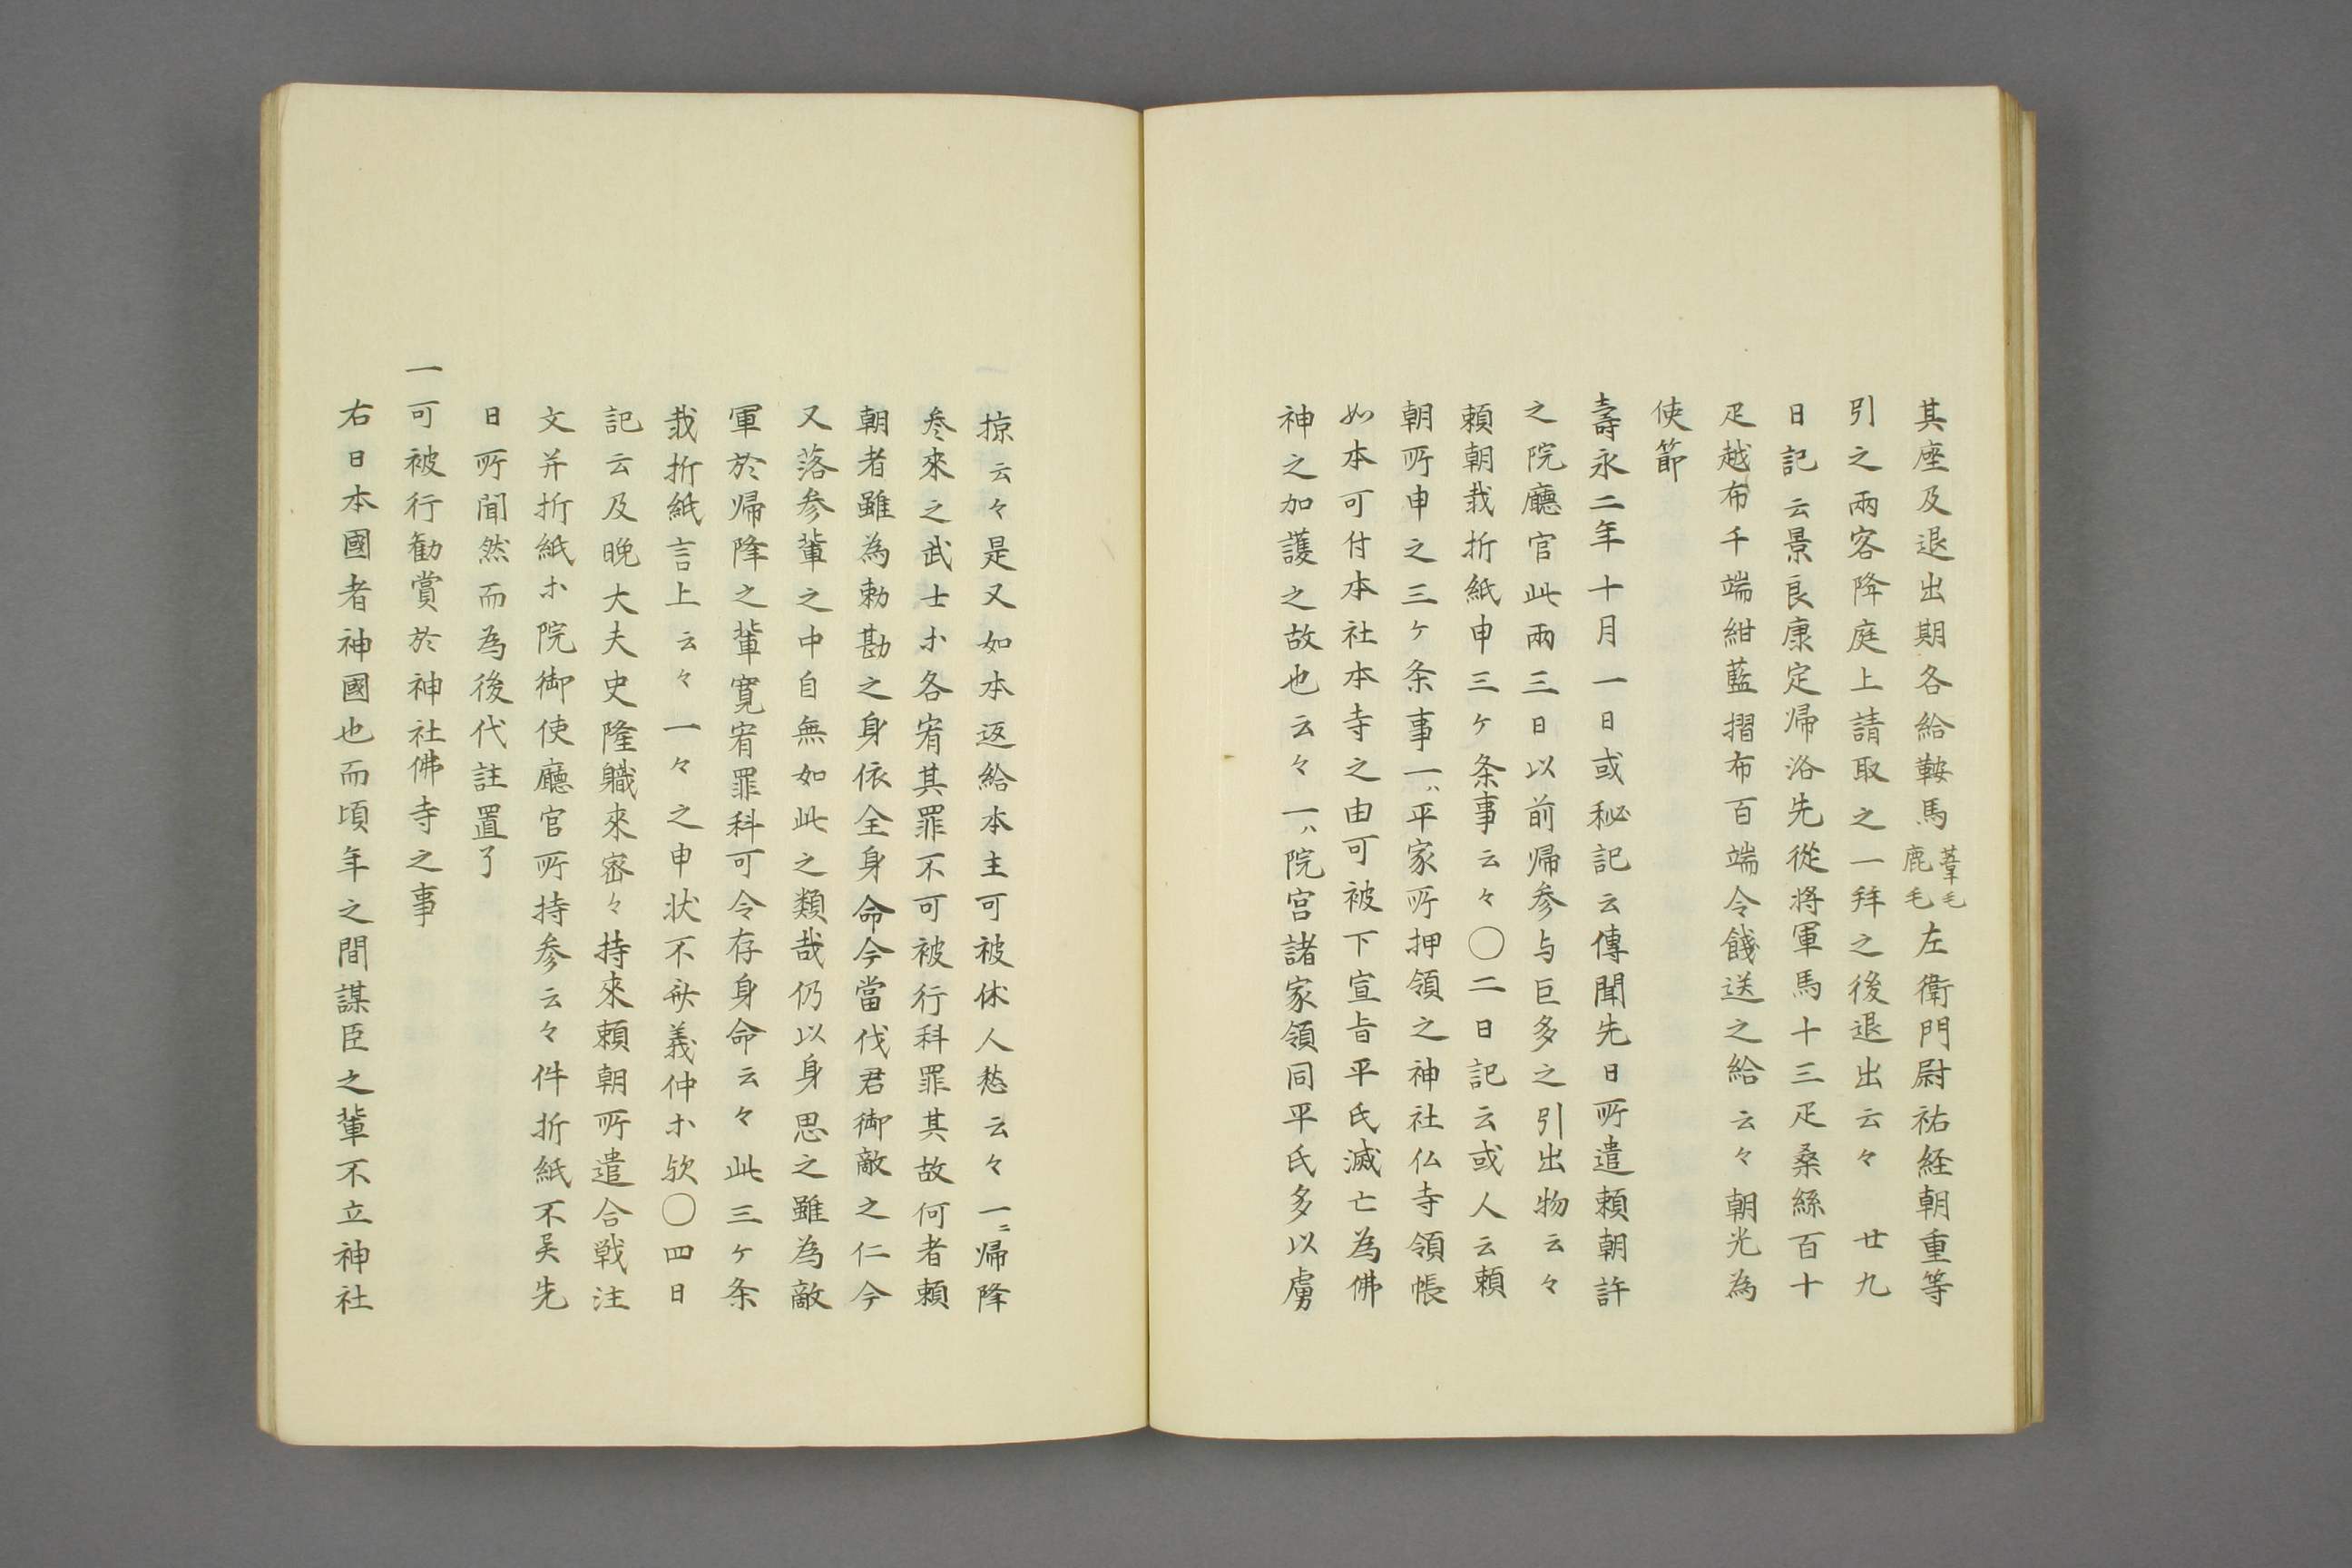 其座及退出期各給鞍馬葦毛鹿毛左衛門尉祐経朝重等
引之兩客降庭上請取之一拜之後退出云々　廿九
日記云景良康定帰洛先従将軍馬十三疋桑絲百十
疋越布千端紺藍摺布百端令餞送之給云々朝光為
使節
壽永二年十月一日或秘記云傳聞先日所遣賴朝許
之院廳官此兩三日以前帰参与巨多之引出物云々
賴朝載折紙申三ケ条事云々〇二日記云或人云賴
朝所申之三ケ条事一ハ平家所押領之神社仏寺領帳
如本可付本社本寺之由可被下宣旨平氏滅亡為佛
神之加護之故也云々一ハ院宮諸家領同平氏多以虜
掠云々是又如本返給本主可被休人愁云々一ニ帰降
参來之武士ホ各宥其罪不可被行科罪其故何者賴
朝者雖為勅勘之身依全身命今當伐君御敵之仁今
又落参輩之中自無如此之類哉仍以身思之雖為敵
軍於帰降之輩寛宥罪科可令存身命云々此三ケ条
載折紙言上云々一々之申状不斉義仲ホ欤〇四日
記云及晩大夫史隆職來密々持來賴朝所遣合戦注
文并折紙ホ院御使廳官所持参云々件折紙不異先
日所聞然而為後代註置了
一可被行勧賞於神社佛寺之事
右日本國者神國也而頃年之間謀臣之輩不立神社